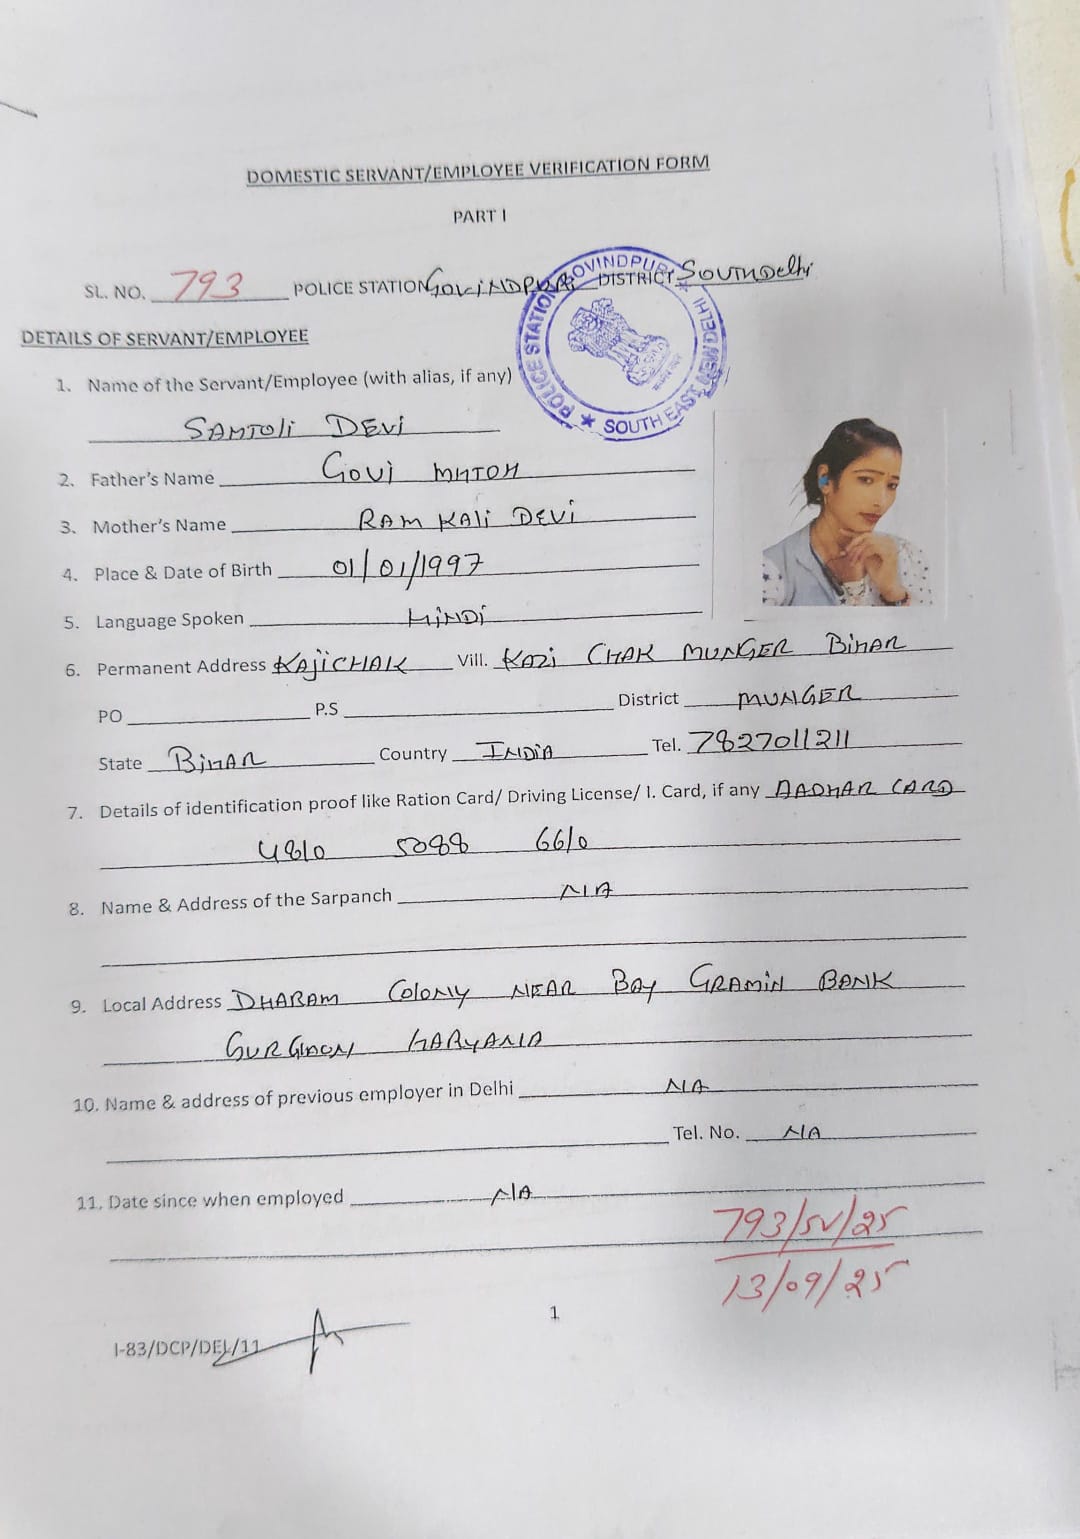 DOMESTIC SERVANT/EMPLOYEE VERIFICATION FORM
PART I
SL. NO. 793 POLICE STATION GOVINDPURI DISTRICT SOUTH Delhi
POLICE STATION GOVINDPURI ★ SOUTH EAST NEW DELHI ★
DETAILS OF SERVANT/EMPLOYEE
1. Name of the Servant/Employee (with alias, if any)
SANTOLI DEVI
2. Father's Name GOVI MHTOH
3. Mother's Name RAM KALI DEVI
4. Place & Date of Birth 01/01/1997
5. Language Spoken HINDI
6. Permanent Address KAJICHAK Vill. KAZI CHAK MUNGER BIHAR
PO P.S District MUNGER
State BIHAR Country INDIA Tel. 7827011211
7. Details of identification proof like Ration Card/ Driving License/ I. Card, if any AADHAR CARD
4810 5088 6610
8. Name & Address of the Sarpanch NIA
9. Local Address DHARAM COLONY NEAR BAY GRAMIN BANK
GURGAON HARYANA
10. Name & address of previous employer in Delhi NIA
Tel. No. NIA
11. Date since when employed N/A
793/SV/25
13/09/25
1
I-83/DCP/DEL/11